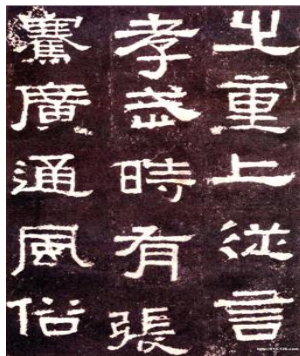 之重上從言
孝武時有張
騫廣通風俗